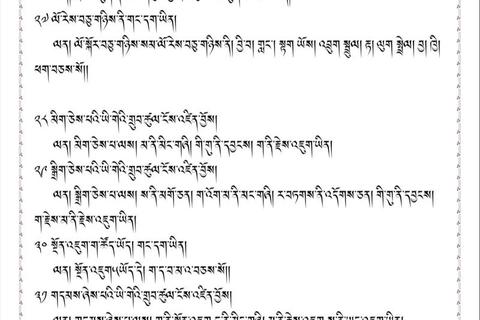 ༢༧ ལོ་རེས་བཅུ་གཉིས་ནི་གང་དག་ཡིན།
ལན། ལོ་སྐོར་བཅུ་གཉིས་སམ་ལོ་རེས་བཅུ་གཉིས་ནི། བྱི་བ། གླང་། སྟག ཡོས། འབྲུག སྦྲུལ། རྟ། ལུག སྤྲེལ། བྱ། ཁྱི།
ཕག་བཅས་སོ།།
༢༨ མིག་ཅེས་པའི་ཡི་གེའི་གྲུབ་ཚུལ་ངོས་འཛིན་བྱོས།
ལན། མིག་ཅེས་པ་ལས། མ་ནི་མིང་གཞི། གི་གུ་ནི་དབྱངས། ག་ནི་རྗེས་འཇུག་ཡིན།
༢༩ སྒྲིག་ཅེས་པའི་ཡི་གེའི་གྲུབ་ཚུལ་ངོས་འཛིན་བྱོས།
ལན། སྒྲིག་ཅེས་པ་ལས། ས་ནི་མགོ་ཅན། ག་འོག་མ་ནི་མིང་གཞི། ར་བཏགས་ནི་འདོགས་ཅན། གི་གུ་ནི་དབྱངས།
ག་རྗེས་མ་ནི་རྗེས་འཇུག་ཡིན།
༣༠ སྔོན་འཇུག་ག་ཚོད་ཡོད། གང་དག་ཡིན།
ལན། སྔོན་འཇུག༥ཡོད་དེ། ག་ད་བ་མ་འ་བཅས་སོ།།
༣༡ གདམས་ཞེས་པའི་ཡི་གེའི་གྲུབ་ཚུལ་ངོས་འཛིན་བྱོས།